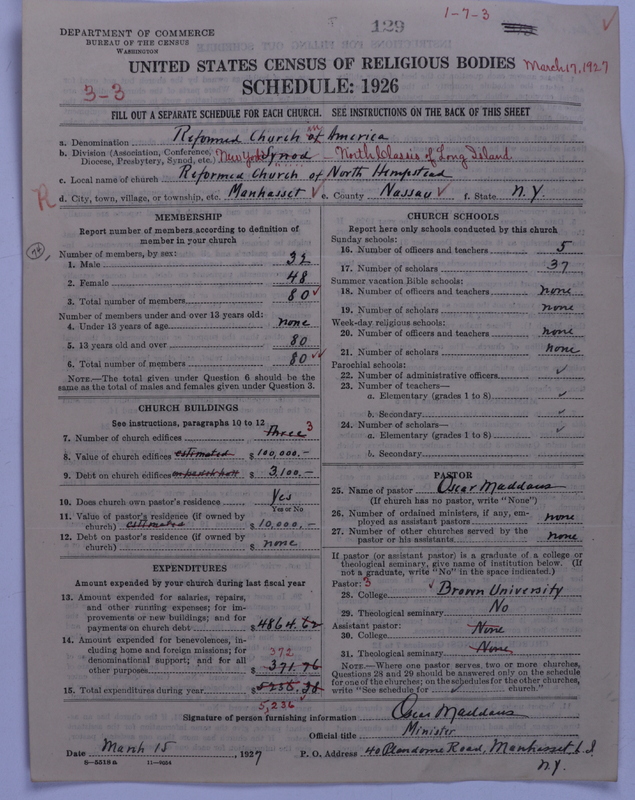 1-7-3
129
DEPARTMENT OF COMMERCE
BUREAU OF THE CENSUS
WASHINGTON
UNITED STATES CENSUS OF RELIGIOUS BODIES March 17, 1927
3-3
SCHEDULE: 1926
FILL OUT A SEPARATE SCHEDULE FOR EACH CHURCH. SEE INSTRUCTIONS ON THE BACK OF THIS SHEET
a. Denomination Reformed Church in America
b. Division (Association, Conference,
Diocese, Presbytery, Synod, etc.) New York Synod - North Classis of Long Island
c. Local name of church Reformed Church of North Hempstead
R d. City, town, village, or township, etc. Manhasset e. County Nassau f. State N.Y.
MEMBERSHIP
Report number of members according to definition of
member in your church
Number of members, by sex:
1. Male 32
2. Female 48
3. Total number of members 80
Number of members under and over 13 years old:
4. Under 13 years of age none
5. 13 years old and over 80
6. Total number of members 80
NOTE.—The total given under Question 6 should be
same as the total of males and females given under Question 3.
CHURCH BUILDINGS
See instructions, paragraphs 10 to 12
7. Number of church edifices three 3
8. Value of church edifices estimated $100,000.-
9. Debt on church edifices $ 3,100.-
10. Does church own pastor's residence Yes
Yes or No
11. Value of pastor's residence (if owned by
church) estimated $10,000.-
12. Debt on pastor's residence (if owned by
church) $ none
EXPENDITURES
Amount expended by your church during last fiscal year
13. Amount expended for salaries, repairs,
and other running expenses; for im-
provements or new buildings; and for
payments on church debt $4864.62
14. Amount expended for benevolences, in-
cluding home and foreign missions; for 372
denominational support; and for all
other purposes $ 371.76
15. Total expenditures during year $ 5236.38
5,236
CHURCH SCHOOLS
Report here only schools conducted by this church
Sunday schools:
16. Number of officers and teachers 5
17. Number of scholars 37
Summer vacation Bible schools:
18. Number of officers and teachers none
19. Number of scholars none
Week-day religious schools:
20. Number of officers and teachers none
21. Number of scholars none
Parochial schools:
22. Number of administrative officers
23. Number of teachers—
a. Elementary (grades 1 to 8)
b. Secondary
24. Number of scholars—
a. Elementary (grades 1 to 8)
b. Secondary
PASTOR
25. Name of pastor Oscar Maddaus
(If church has no pastor, write "None")
26. Number of ordained ministers, if any, em-
ployed as assistant pastors none
27. Number of other churches served by the
pastor or his assistants none
If pastor (or assistant pastor) is a graduate of a college or
theological seminary, give name of institution below. (If
not a graduate, write "No" in the space indicated.)
Pastor: 3
28. College Brown University
29. Theological seminary No
Assistant pastor:
30. College None
31. Theological seminary None
NOTE.—Where one pastor serves two or more churches,
Questions 28 and 29 should be answered only on the schedule
for one of the churches; on the schedules for the other churches,
write "See schedule for church."
Signature of person furnishing information Oscar Maddaus
Official title Minister
Date March 15, 1927 P. O. Address 40 Plandome Road, Manhasset L.I.
8—5518a 11—9054 N.Y.